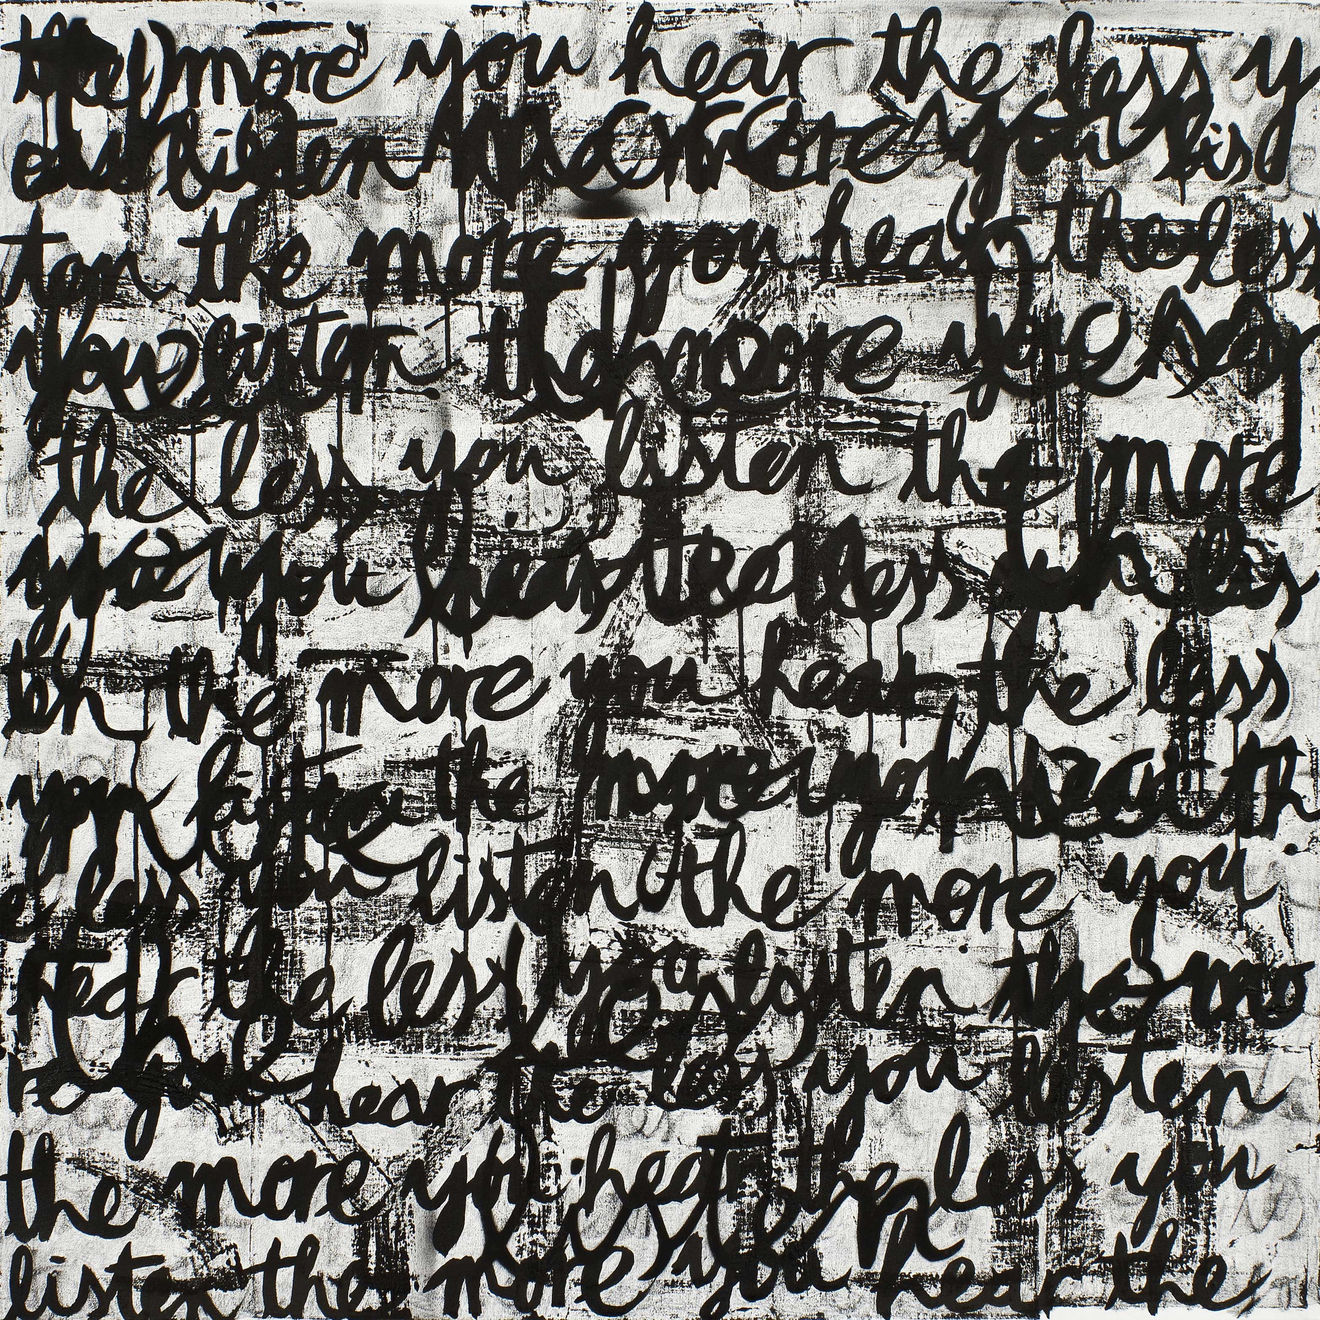 the more you hear the less y
ou listen the more you lis
ten the more you hear the less
you listen the more you hear
the less you listen the more
you hear the less
the more you hear the less
you listen the more you hear th
e less you listen the more you
hear the less you listen the mo
re you hear the less you listen
the more you hear the less you
listen
listen the more you hear the